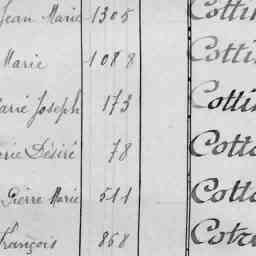 Jean Marie 1305 Cottin
Marie 1088 Cottin
Marie Joseph 173 Cottin
Marie Désiré 78 Cotto
Pierre Marie 511 Cotto
François 868 Cotre